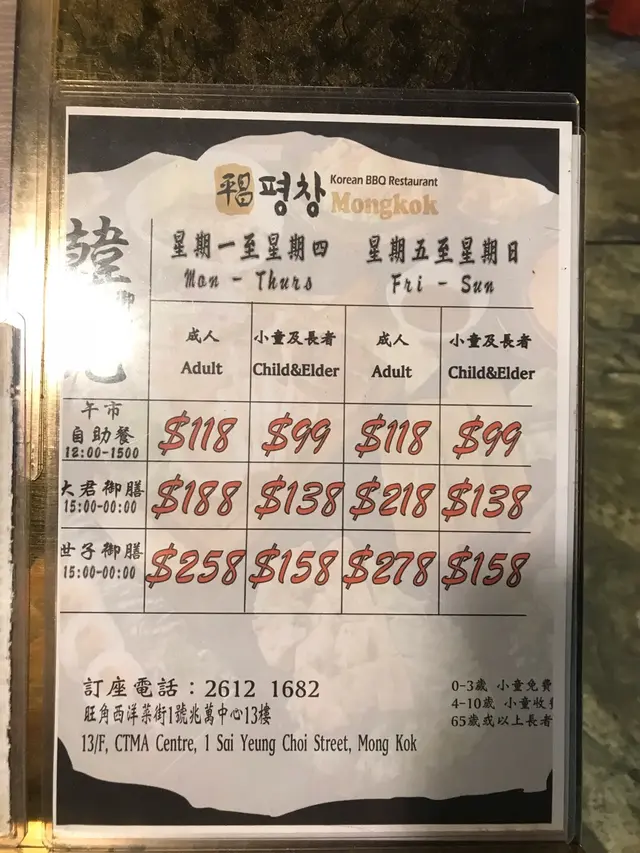 平昌 평창 Korean BBQ Restaurant
Mongkok
韓
星期一至星期四 星期五至星期日
Mon - Thurs Fri - Sun
成人 小童及長者 成人 小童及長者
Adult Child&Elder Adult Child&Elder
午市
自助餐 $118 $99 $118 $99
12:00-1500
大君御膳 $188 $138 $218 $138
15:00-00:00
世子御膳 $258 $158 $278 $158
15:00-00:00
訂座電話：2612 1682
旺角西洋菜街1號兆萬中心13樓
13/F, CTMA Centre, 1 Sai Yeung Choi Street, Mong Kok
0-3歲 小童免費
4-10歲 小童收費
65歲或以上長者